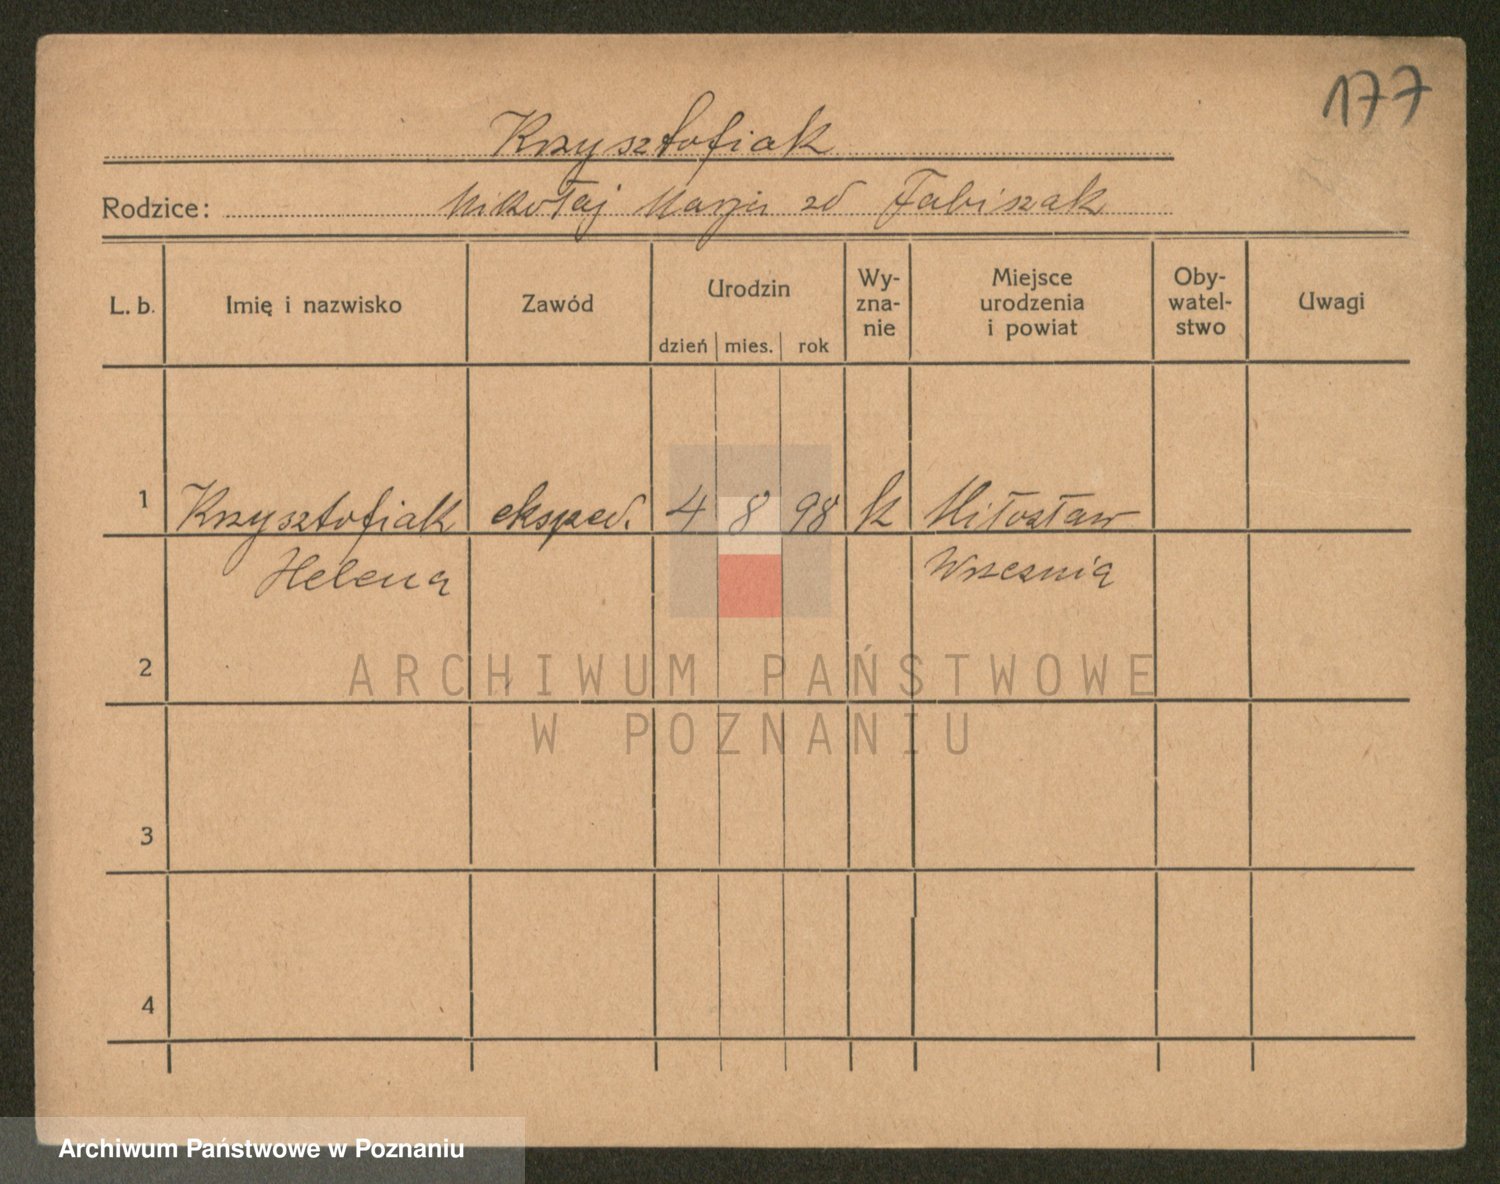 177
Krzysztofiak
Rodzice: Mikołaj Marja zd Fabiszak
L. b. Imię i nazwisko Zawód Urodzin dzień mies. rok Wy-zna-nie Miejsce urodzenia i powiat Oby-watel-stwo Uwagi
1 Krzysztofiak eksped. 4 8 98 k Miłosław
Helena Wrzesnia
2
ARCHIWUM PAŃSTWOWE
W POZNANIU
3
4
Archiwum Państwowe w Poznaniu